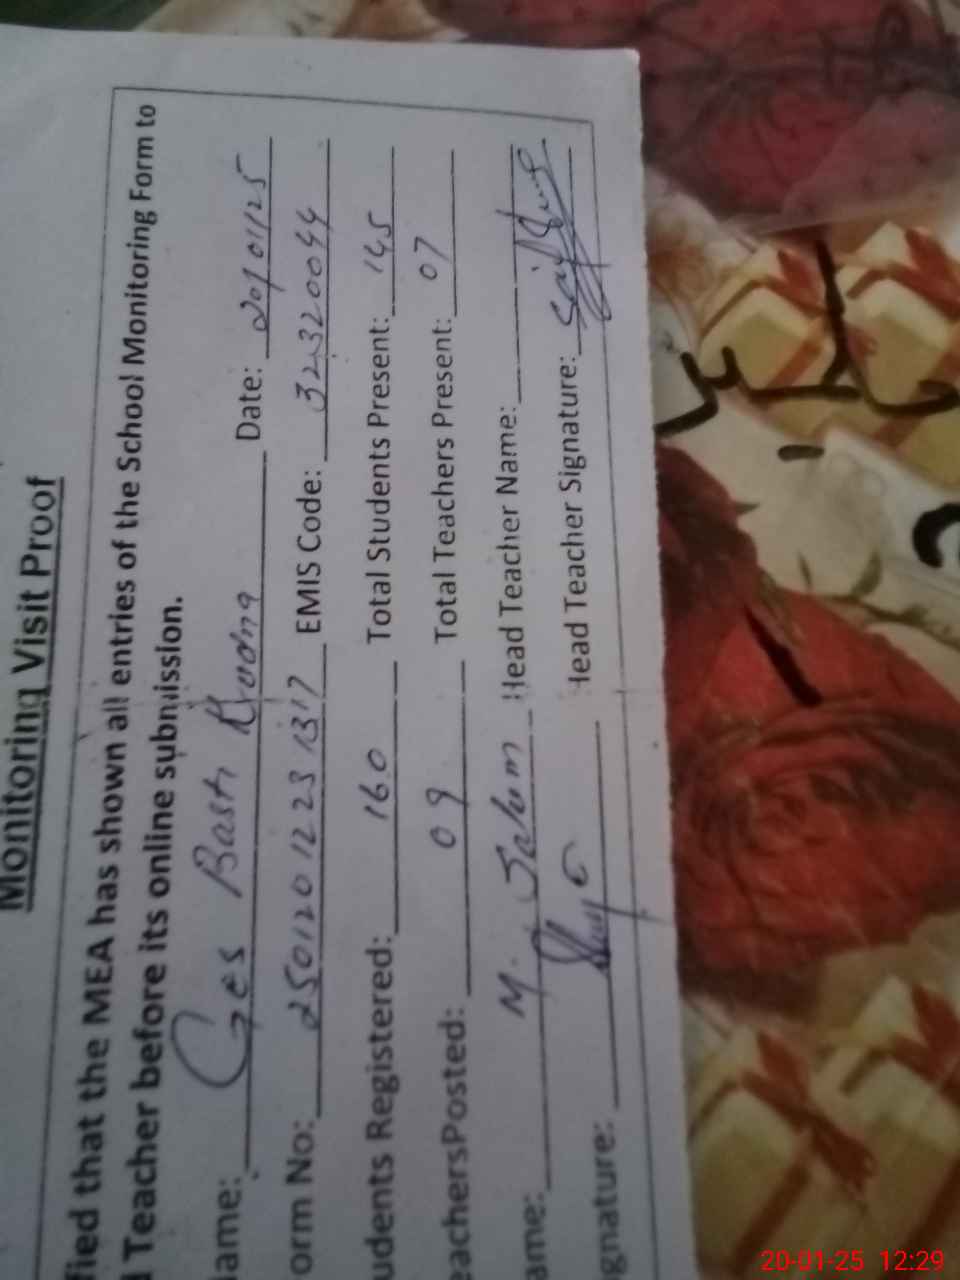 Monitoring Visit Proof
fied that the MEA has shown all entries of the School Monitoring Form to
Teacher before its online submission.
ame: Ges Basti Date: 20/01/25
orm No: EMIS Code: 32320044
udents Registered: 160 Total Students Present: 145
eachersPosted: 09 Total Teachers Present: 07
ame: M. Salum Head Teacher Name:
gnature: Head Teacher Signature:
20-01-25 12:29